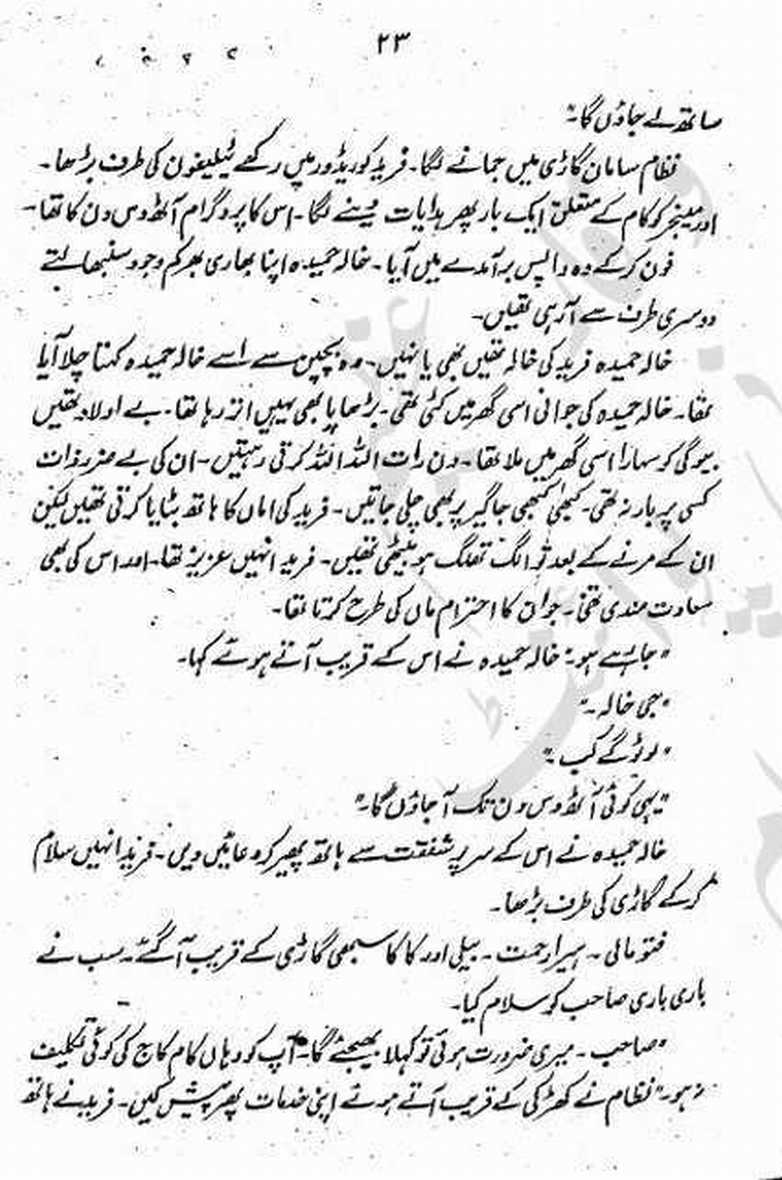 ۲۳
ساتھ لے جاؤں گا۔"
نظام سامان گاڑی میں جمانے لگا۔ فرید کوریڈور میں رکھے ٹیلیفون کی طرف بڑھا۔
اور مینجر کو کام کے متعلق ایک بار پھر ہدایات دینے لگا۔ اس کا پروگرام آٹھ دس دن کا تھا۔
فون کر کے وہ واپس برآمدے میں آیا۔ خالہ حمیدہ اپنا بھاری بھرکم وجود سنبھالتے
دوسری طرف سے آ رہی تھیں۔
خالہ حمیدہ فرید کی خالہ تھیں بھی یا نہیں۔ وہ بچپن سے اسے خالہ حمیدہ کہتا چلا آیا
تھا۔ خالہ حمیدہ کی جوانی اسی گھر میں کٹی تھی۔ بڑھاپا بھی یہیں اتر رہا تھا۔ بے اولاد تھیں
بیوگی کو سہارا اسی گھر میں ملا تھا۔ دن رات اللہ اللہ کرتی رہتیں۔ ان کی بے ضرر ذات
کسی پر بار نہ تھی۔ کبھی کبھی جاگیر پر بھی چلی جاتیں۔ فرید کی اماں کا ہاتھ بٹایا کرتی تھیں لیکن
ان کے مرنے کے بعد تو الگ تھلگ ہو بیٹھی تھیں۔ فرید انہیں عزیز تھا۔ اور اس کی بھی
سعادت مندی تھی۔ جو ان کا احترام ماں کی طرح کرتا تھا۔
"جا رہے ہو۔" خالہ حمیدہ نے اس کے قریب آتے ہوئے کہا۔
"جی خالہ۔"
"لوٹو گے کب۔"
"یہی کوئی آٹھ دس دن تک آ جاؤں گا۔"
خالہ حمیدہ نے اس کے سر پر شفقت سے ہاتھ پھیر کر دعائیں دیں۔ فرید انہیں سلام
کر کے گاڑی کی طرف بڑھا۔
فتو مالی۔ ہیرا رحمت۔ بیلی اور کاکا سبھی گاڑی کے قریب آ گئے۔ سب نے
باری باری صاحب کو سلام کیا۔
"صاحب۔ میری ضرورت ہوئی تو کہلا بھیجئے گا۔ آپ کو وہاں کام کاج کی کوئی تکلیف
نہ ہو۔" نظام نے کھڑکی کے قریب آتے ہوئے اپنی خدمات پھر پیش کیں۔ فرید نے ہاتھ